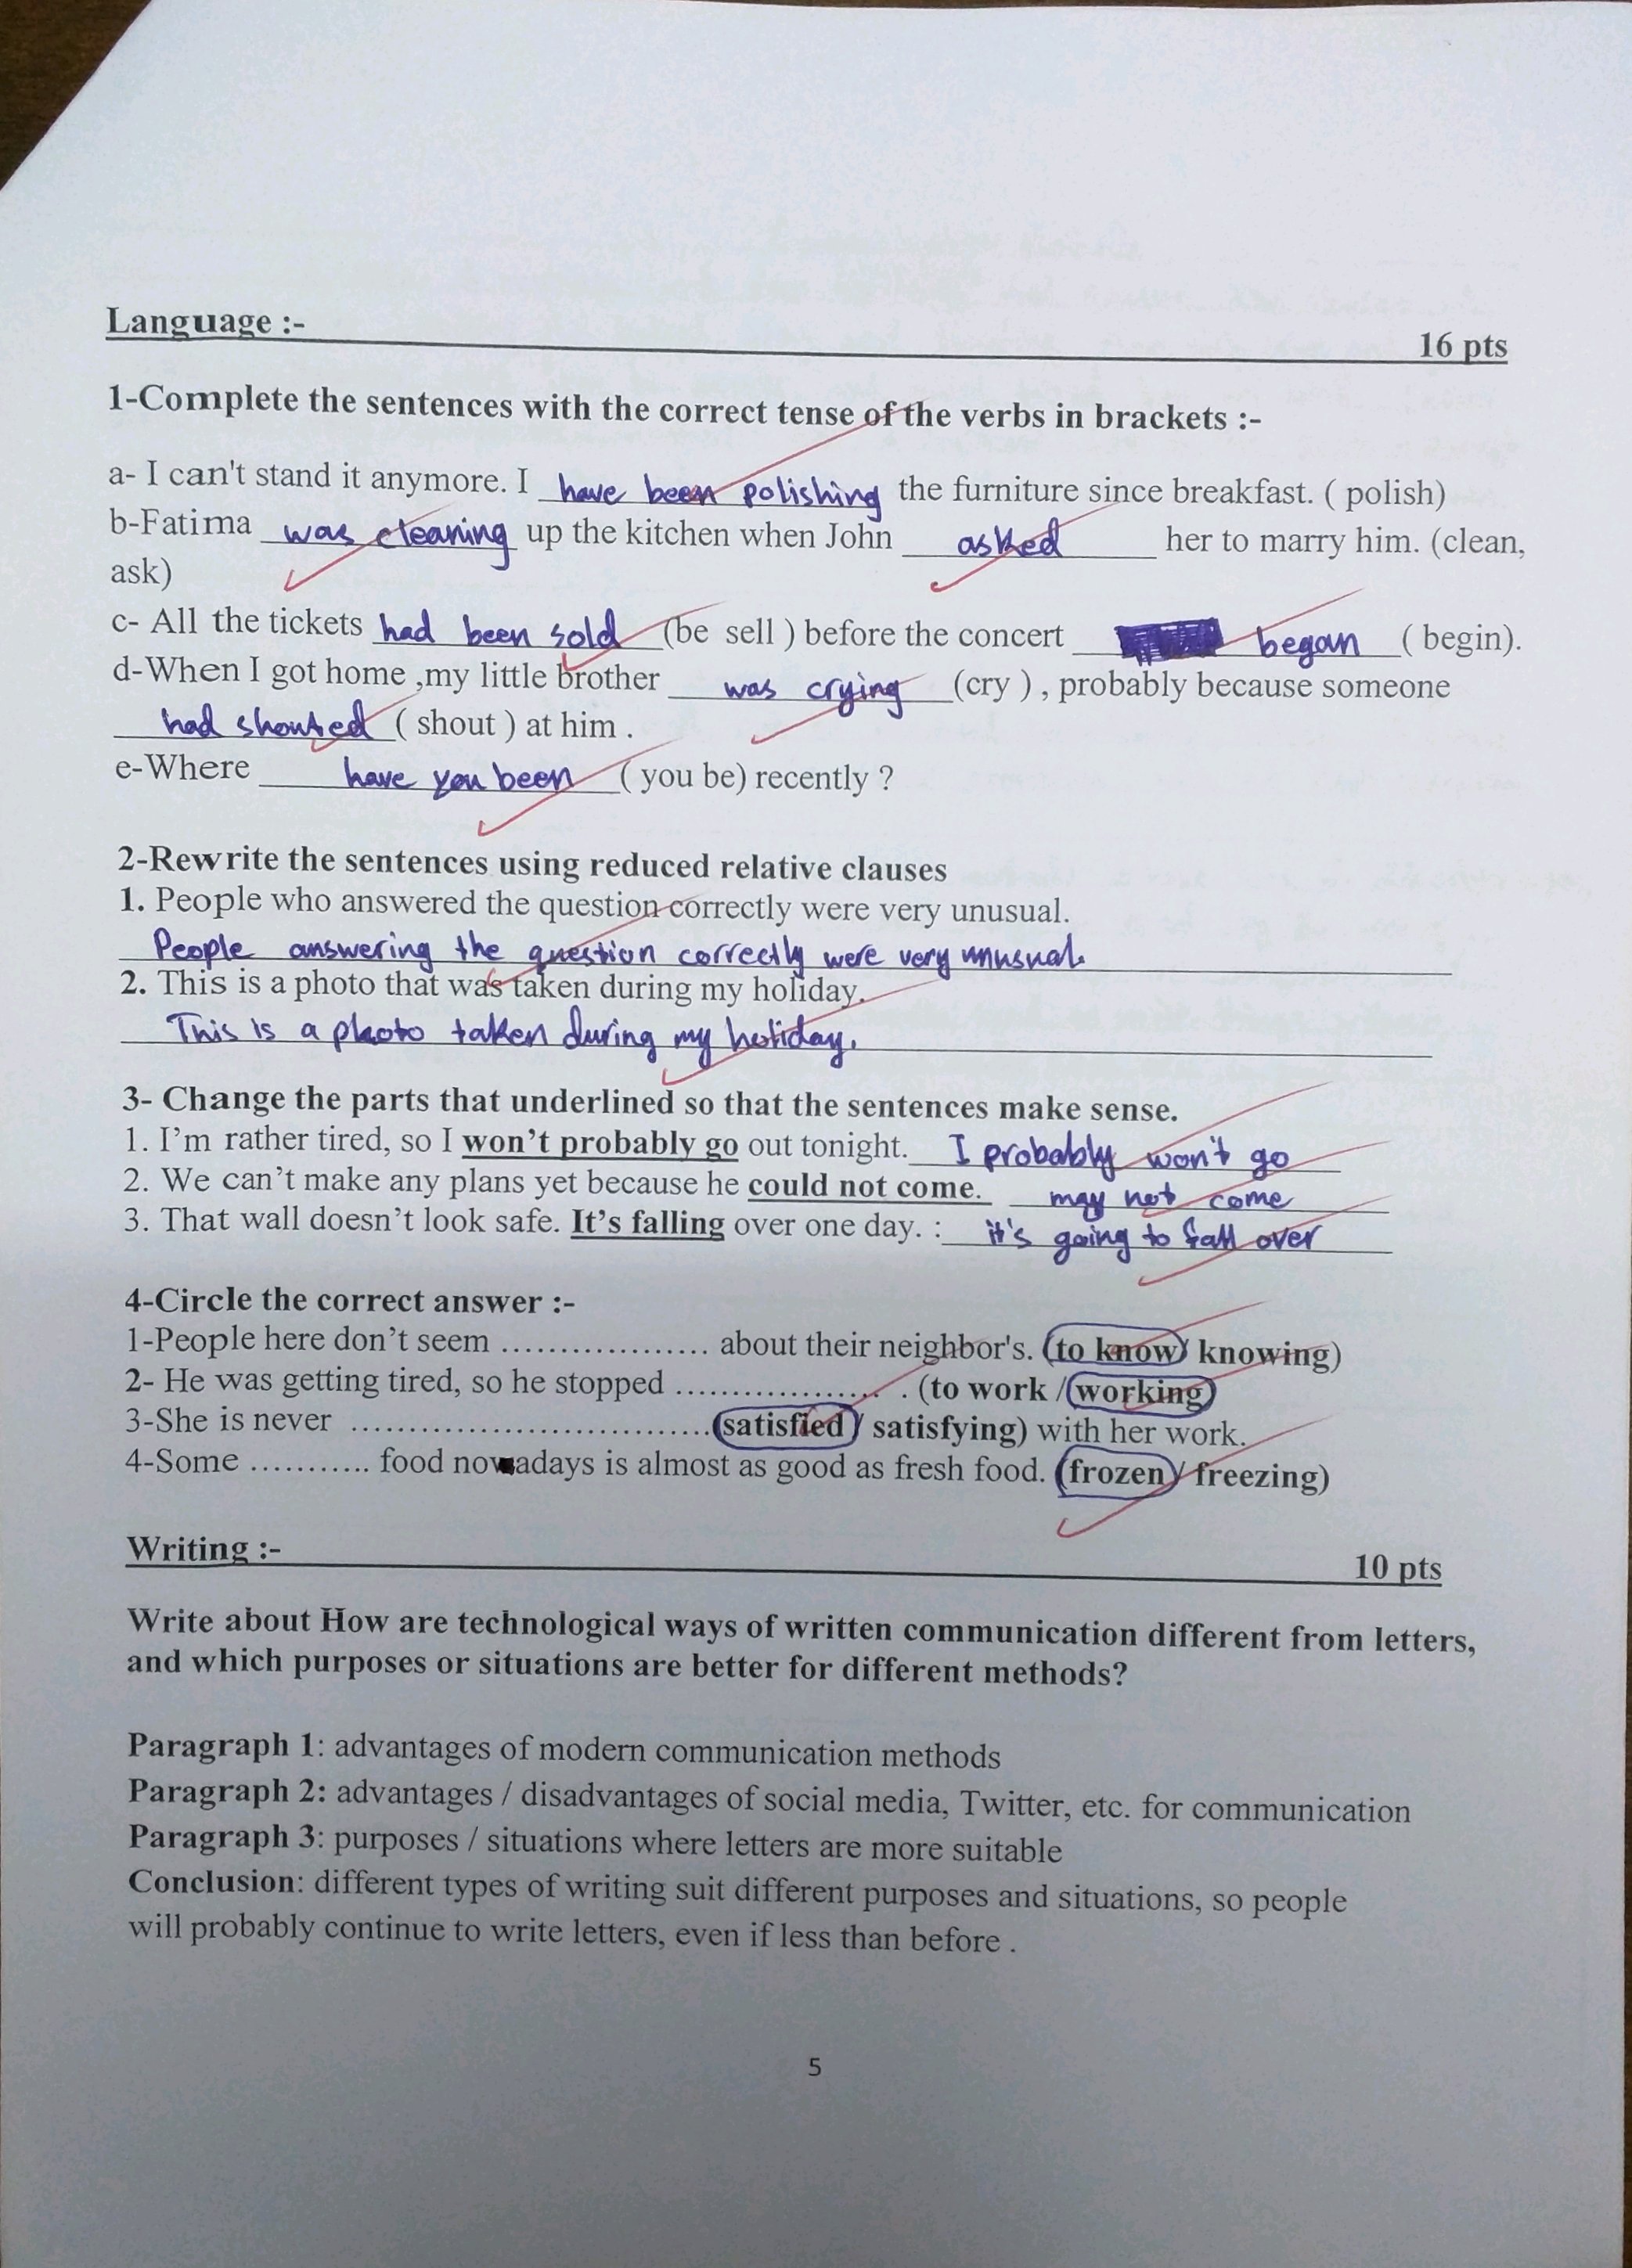 Language :- 16 pts
1-Complete the sentences with the correct tense of the verbs in brackets :-
a- I can't stand it anymore. I have been polishing the furniture since breakfast. ( polish)
b-Fatima was cleaning up the kitchen when John asked her to marry him. (clean,
ask)
c- All the tickets had been sold (be sell ) before the concert began ( begin).
d-When I got home ,my little brother was crying (cry ) , probably because someone
had shouted ( shout ) at him .
e-Where have you been ( you be) recently ?
2-Rewrite the sentences using reduced relative clauses
1. People who answered the question correctly were very unusual.
People answering the question correctly were very unusual.
2. This is a photo that was taken during my holiday.
This is a photo taken during my holiday.
3- Change the parts that underlined so that the sentences make sense.
1. I'm rather tired, so I won't probably go out tonight. I probably won't go
2. We can't make any plans yet because he could not come. may not come
3. That wall doesn't look safe. It's falling over one day. : it's going to fall over
4-Circle the correct answer :-
1-People here don't seem .................. about their neighbor's. (to know/ knowing)
2- He was getting tired, so he stopped .................. . (to work / working)
3-She is never ............................... (satisfied / satisfying) with her work.
4-Some ........... food nowadays is almost as good as fresh food. (frozen / freezing)
Writing :- 10 pts
Write about How are technological ways of written communication different from letters,
and which purposes or situations are better for different methods?
Paragraph 1: advantages of modern communication methods
Paragraph 2: advantages / disadvantages of social media, Twitter, etc. for communication
Paragraph 3: purposes / situations where letters are more suitable
Conclusion: different types of writing suit different purposes and situations, so people
will probably continue to write letters, even if less than before .
5